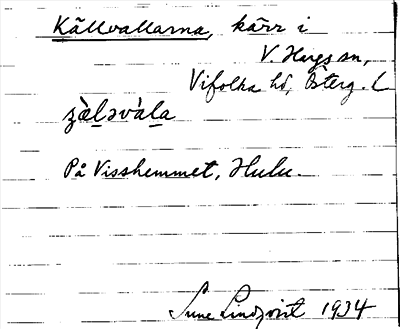 Källvallarna, kärr i
V. Hargs sn,
Vifolka hd, Österg. l
På Visshemmet, Hulu.
Sune Lindqvist 1934